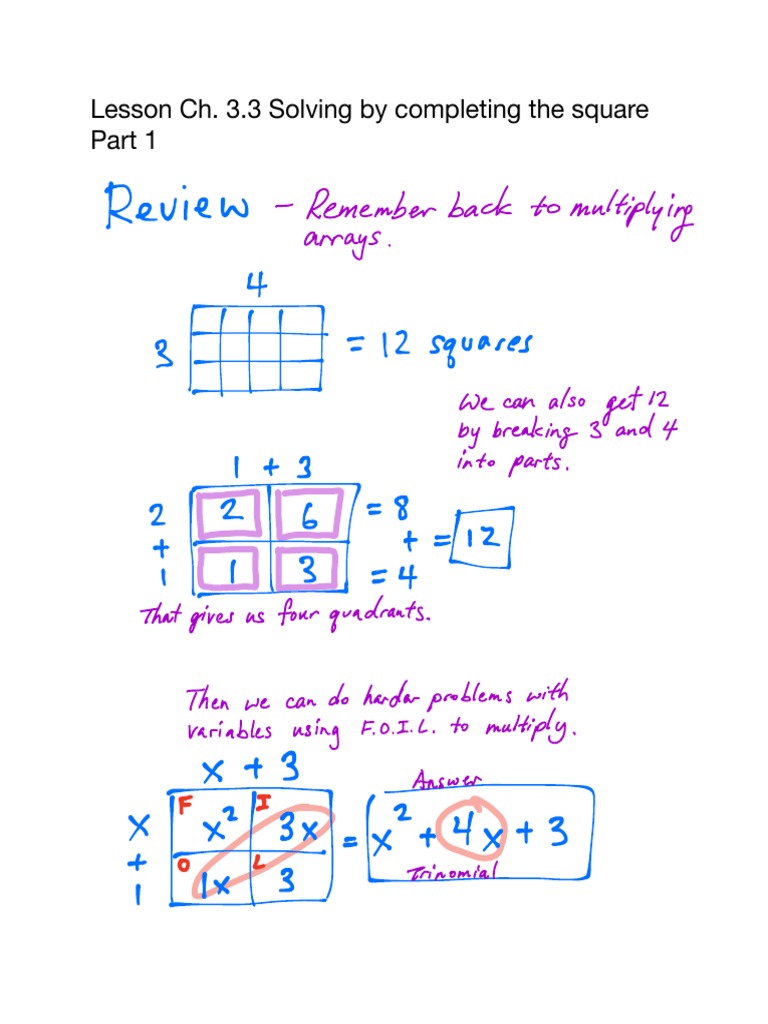 Lesson Ch. 3.3 Solving by completing the square
Part 1
Review - Remember back to multiplying
arrays.
4
3 = 12 squares
We can also get 12
by breaking 3 and 4
into parts.
1 + 3
2 2 6 = 8
+ + = 12
1 1 3 = 4
That gives us four quadrants.
Then we can do harder problems with
variables using F.O.I.L. to multiply.
x + 3
Answer
F I
x x² 3x = x² + 4x + 3
+ O L
1 1x 3
Trinomial